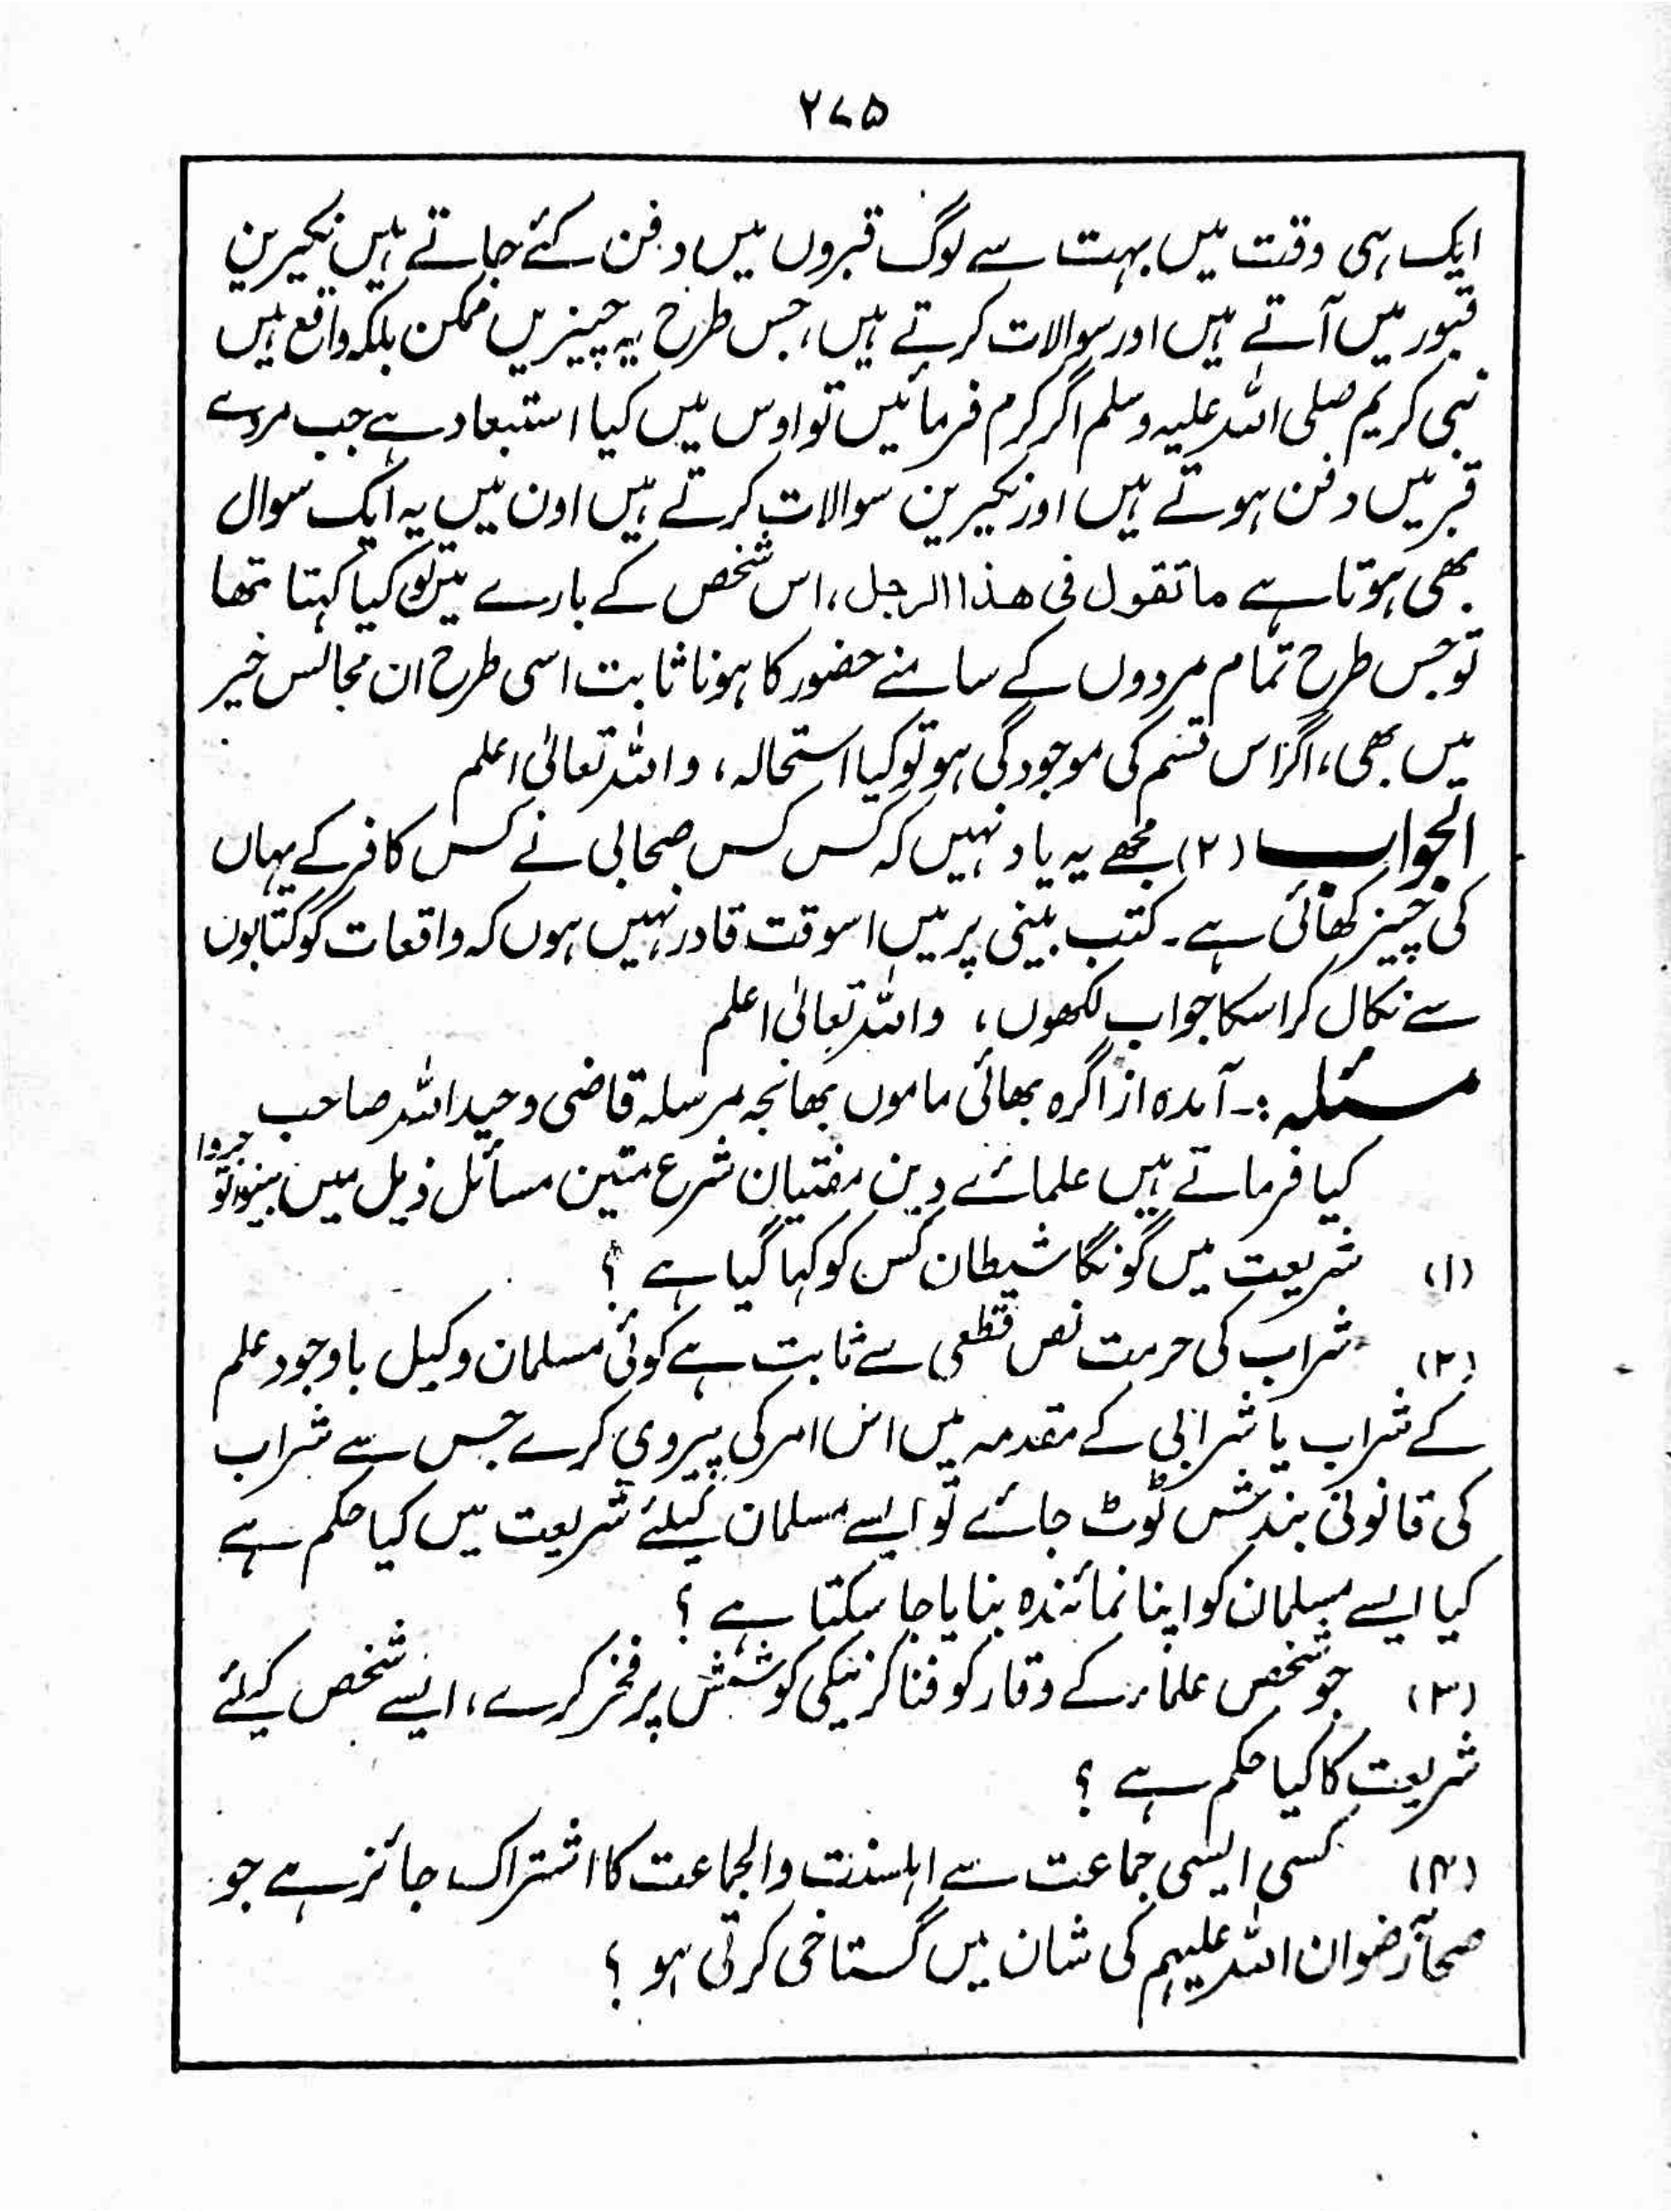 ۲۷۵
ایک ہی وقت میں بہت سے لوگ قبروں میں دفن کئے جاتے ہیں نکیرین
قبور میں آتے ہیں اور سوالات کرتے ہیں، جس طرح یہ چیزیں ممکن بلکہ واقع ہیں
نبی کریم صلی اللہ علیہ وسلم اگر کرم فرمائیں تو اوس میں کیا استبعاد ہے جب مردے
قبر میں دفن ہوتے ہیں اور نکیرین سوالات کرتے ہیں اون میں یہ ایک سوال
بھی ہوتا ہے ما تقول فی ھذا الرجل، اس شخص کے بارے میں تو کیا کہتا تھا
تو جس طرح تمام مردوں کے سامنے حضور کا ہونا ثابت اسی طرح ان مجالس خیر
میں بھی، اگر اس قسم کی موجودگی ہو تو کیا استحالہ، واللہ تعالیٰ اعلم
الجواب (۲) مجھے یہ یاد نہیں کہ کس کس صحابی نے کس کافر کے یہاں
کی چیز کھائی ہے۔ کتب بینی پر میں اسوقت قادر نہیں ہوں کہ واقعات کو کتابوں
سے نکال کر اسکا جواب لکھوں، واللہ تعالیٰ اعلم
مسئلہ :۔ آمدہ از اگرہ بھائی ماموں بھانجہ مرسلہ قاضی وحید اللہ صاحب
کیا فرماتے ہیں علمائے دین مفتیان شرع متین مسائل ذیل میں بینوا توجروا
(۱) شریعت میں گونگا شیطان کس کو کہا گیا ہے ؟
(۲) شراب کی حرمت نص قطعی سے ثابت ہے کوئی مسلمان وکیل باوجود علم
کے شراب یا شرابی کے مقدمہ میں اس امر کی پیروی کرے جس سے شراب
کی قانونی بندش ٹوٹ جائے تو ایسے مسلمان کیلئے شریعت میں کیا حکم ہے
کیا ایسے مسلمان کو اپنا نمائندہ بنایا جا سکتا ہے ؟
(۳) جو شخص علماء کے وقار کو فنا کرنیکی کوشش پر فخر کرے، ایسے شخص کیلئے
شریعت کا کیا حکم ہے ؟
(۴) کسی ایسی جماعت سے اہلسنت والجماعت کا اشتراک جائز ہے جو
صحابہ رضوان اللہ علیہم کی شان میں گستاخی کرتی ہو ؟